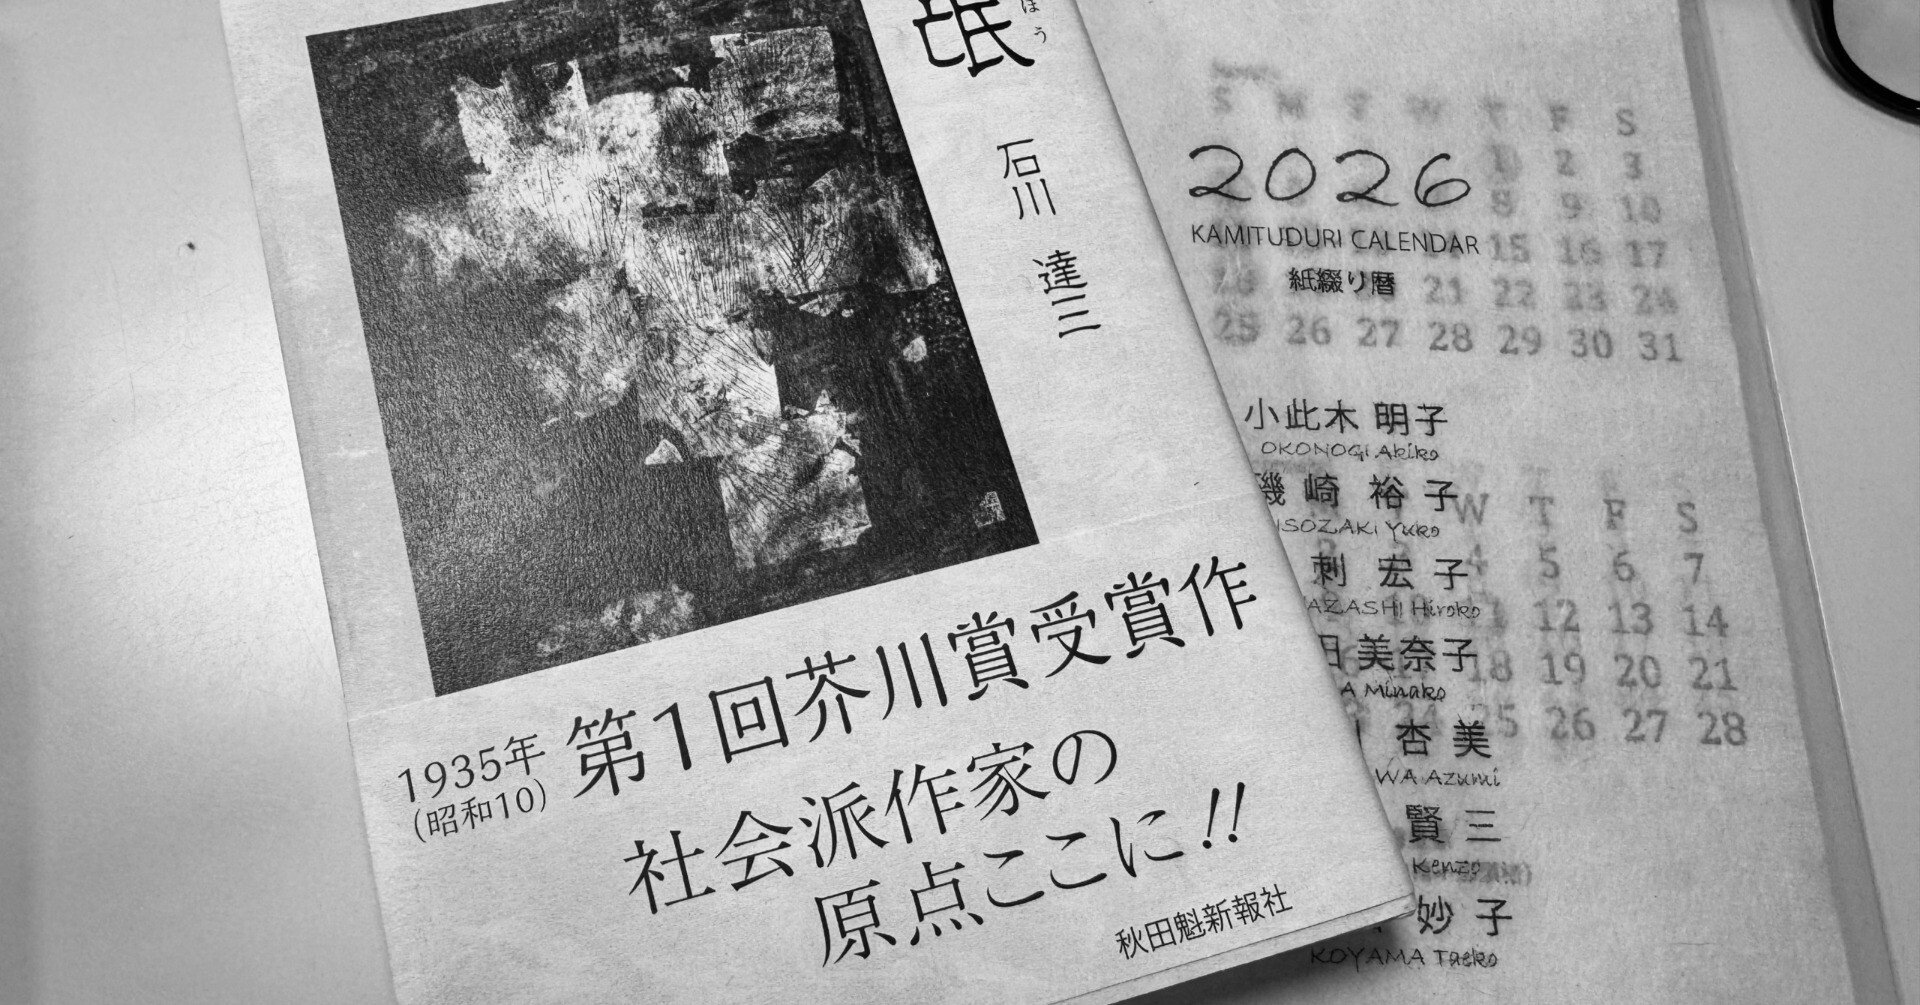 氓
ぼう
石川 達三
1935年
(昭和10)
第1回芥川賞受賞作
社会派作家の
原点ここに!!
秋田魁新報社
S M T W T F S
1 2 3
8 9 10
15 16 17
21 22 23 24
25 26 27 28 29 30 31
2026
KAMITUDURI CALENDAR
紙綴り暦
小此木 明子
OKONOGI Akiko
磯崎 裕子
ISOZAKI Yuko
刺 宏子
AZASHI Hiroko
田 美奈子
A Minako
杏美
WA Azumi
賢三
Kenzo
妙子
KOYAMA Taeko
W T F S
4 5 6 7
11 12 13 14
18 19 20 21
24 25 26 27 28